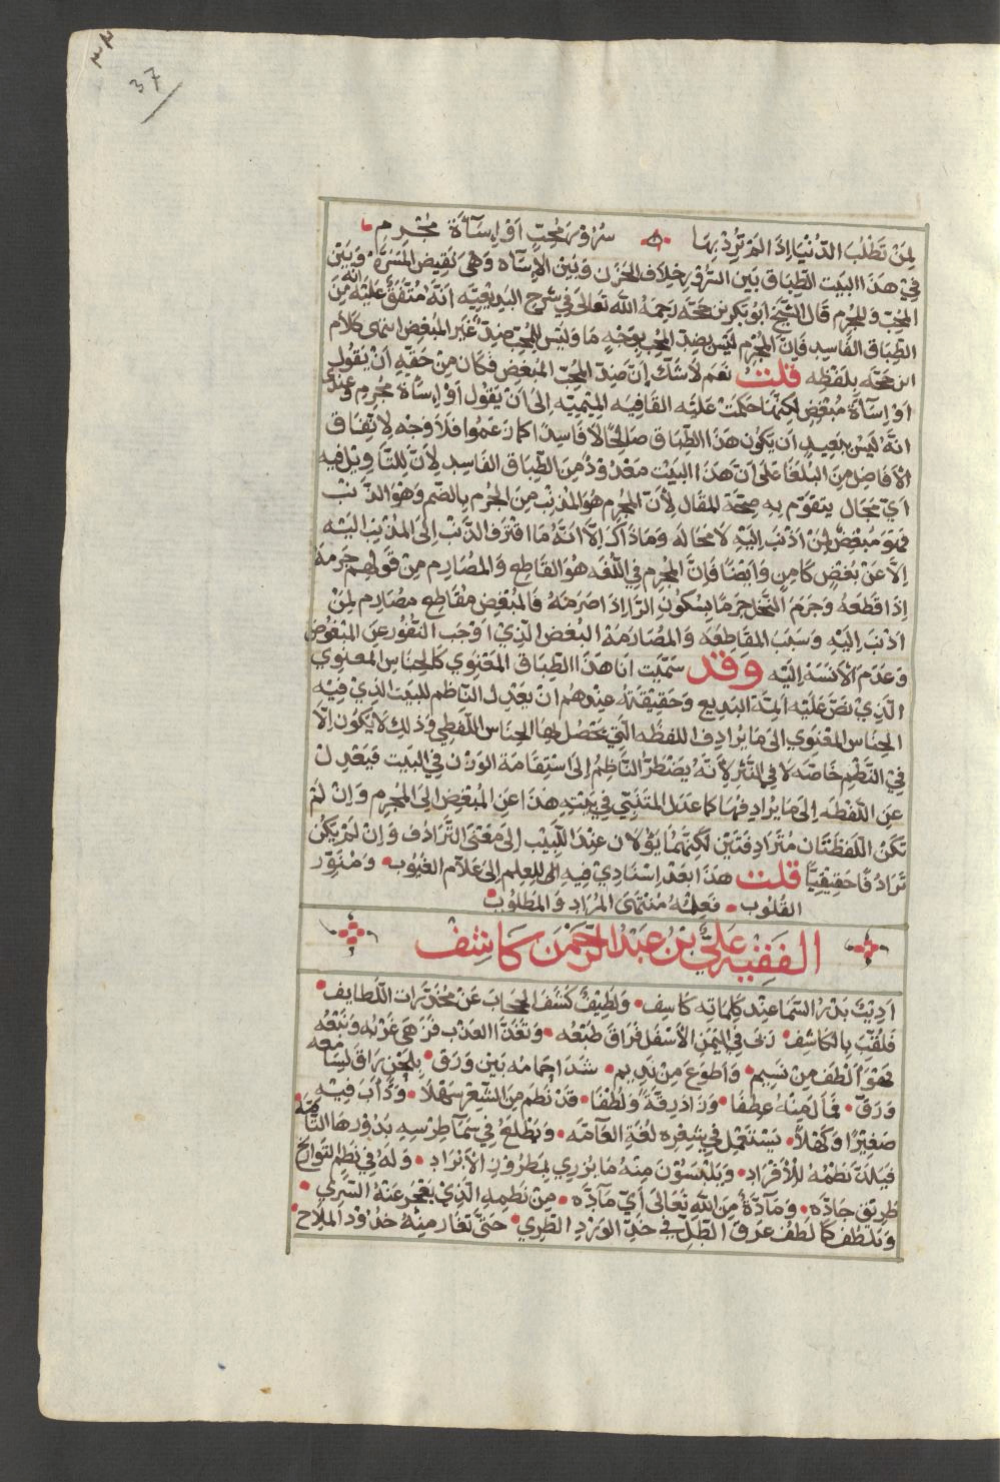 ٣٧
37
لِمَنْ تَطْلُبُ الدُّنْيَا اِذَا لَمْ تُرِدْ بِهَا سُرُورَ مُحِبٍّ اَوْ اِسَآءَةَ مُجْرِمِ
فِيْ هَذَا البَيْت الطِّبَاق بَين السُّرُور خِلَاف الحَزَن وَبَيْن الإِسَاه وَهْيَ نَقِيضُ المَسَرَّة وَبَيْنَ
المحِبّ وَالمُجْرِم قَالَ الشَّيْخ اَبُوْ بَكْر بن حَجَّه رَحِمَهُ اللّٰه تَعَالَى فِي شَرح البَدِيْعِيَّه اَنَّهُ مُتَّفَقٌ عَلَيْه اَنَّهُ مِنَ
الطِّبَاق الفَاسِد فَاِنَّ المُجْرِم لَيْسَ بِضِدِّ المُحِبّ بِوَجْهٍ مَا وَلَيْسَ لِلْمُحِبّ ضِدّ غَيْر المُبْغِض انتهى كَلَام
ابن حَجَّه بِلَفْظِه قُلْتُ نَعَمْ لَا شَكَّ اِنَّ ضِدّ المُحِبّ المُبْغِض فَكَان مِنْ حَقِّهِ اَنْ يَقُول
اَوْ اِسَآءَةَ مُبْغِضٍ لَكِنَّهَا حَكَمَتْ عَلَيْه القَافِيَه المِيْمِيَّه اِلَى اَنْ يَقُوْل اَوْ اِسَآءَةَ مُجْرِمِ وَعِنْدِيْ
اَنَّهُ لَيْسَ بِبَعِيْدٍ اَن يَكُوْن هَذَا الطِّبَاق صَالِحًا لَا فَاسِدًا كَمَا زَعَمُوا فَلَا وَجْه لِاتِّفَاق
الاَفَاضِل مِنَ البُلَغَا عَلَى اَنَّ هَذَا البَيْت مَعْدُوْدٌ مِنَ الطِّبَاق الفَاسِد لِاَنَّ لِلتَّأوِيْل فِيه
اَيّ مَجَال يَتَقَوَّم بِه صِحَّة المَقَال لِاَنَّ المُجْرِم هُوَ المُذْنِبْ مِنَ الجُرْم بِالضَّم وَهْوَ الذَّنْبْ
فَهوَ مُبْغِضٌ لِمَنْ اَذْنَبَ اِلَيْهِ لَا مَحَالَه وَمَا ذَاكَ اِلَّا اَنَّهُ مَا اقْتَرَفَ الذَّنْبَ اِلَى المُذْنَبِ اِلَيْه
اِلَّا عَنْ بُغْضٍ كَامِنٍ وَاَيْضًا فَاِنَّ المُجْرِم فِي اللُّغَه هُوَ القَاطِع وَالمُصَارِم مِنْ قَوْلِهِمْ جَرَمَهُ
اِذَا قَطَعَهُ وَجَرَمَ النَّخْل جَرْمًا بِسُكُوْن الرَّا اِذَا صَرَمَهُ فَالمُبْغِض مُقَاطِع مُصَارِم لِمَنْ
اَذْنَبَ اِلَيْهِ وَسَبَبُ المُقَاطَعَه وَالمُصَارَمَة البُغْض الَّذِيْ اَوْجَبَ النُّفُوْر عَنِ المَبْغُوْض
وَعَدَمَ الاُنْسَة اِلَيْه وَقَدْ سَمَّيْت اَنَا هَذَا الطِّبَاق المَعْنَوِي كَالجِنَاس المَعْنَوِي
الَّذِيْ نَصَّ عَلَيْه اَئِمَّة البَدِيع وَحَقِيْقَتهُ عِنْدَهُم اَنْ يَعْدِلَ النَّاظِم لِلبَيْت الَّذِيْ فِيْه
الجِنَاس المَعْنَوِي اِلَى مَا يُرَادِف اللَّفْظَه الَّتِي يَحْصُل بِهَا الجِنَاس اللَّفْظِي وَذَلِكَ لَا يَكُوْن اِلَّا
فِيْ النَّظْمِ خَاصَّه لَا فِي النَّثْر لِاَنَّهُ يَضْطَرّ النَّاظِم اِلَى اسْتِقَامَة الوَزْن فِي البَيْت فَيَعْدِلْ
عَنِ اللَّفْظَه اِلَى مَا يُرَادِفهَا كَمَا عَدَلَ المُتَنَبِّي فِي بَيْتِهِ هَذَا عَنِ المُبْغِض اِلَى المُجْرِم وَاِنْ لَمْ
تَكُنْ اللَّفْظَتَان مُتَرَادِفَتَيْن لَكِنَّهُمَا يَؤُوْلَان عِنْدَ اللَّبِيْب اِلَى مَعْنَى التَّرَادُف وَاِنْ لَمْ يَكُنْ
تَرَادُفًا حَقِيْقِيًّا قُلْتُ هَذَا بَعْدَ اِسْنَادِيْ فِيْهِ اِلَى العِلم اِلَى عَلَّام الغُيُوْب وَمُنَوِّر
القُلُوب فَعِلْمُهُ مُنْتَهَى المُرَاد وَالمَطْلُوْب
الفَقِيْه عَلِيّ بْنُ عَبْدُ الرَّحْمَن كَاشِفْ
اَدِيْبٌ بَدْرُ السَّمَا عِنْدَ كَلِمَاتِه كَاسِف وَلَطِيْفٌ كَشَفَ الحِجَابَ عَنْ مُخَدَّرَات اللَّطَايف
فَلُقِّبَ بِالكَاشِف رَقَّ فِي اليَمَن الأَسْفَل فَرَاقَ طَبْعُه وَتَغَذَّا العَذْبَ فَزَهَى غَرْبُه وَنَبْعُهُ
فَهْوَ اَلْطَفْ مِنْ نَسِيْم وَاَطْوَعْ مِنْ نَدِيم شَدَا حَمَامُه بَيْن وَرَق بِلَحْنٍ رَاقَ لِسَامعه
وَرَقّ فَمَالَ مِنْهُ عِطْفًا وَزَادَ رِقَّةً وَلُطْفَا قَدْ نَظَمَ مِنَ الشِّعْر سَهْلَا وَدَأَبَ فِيْه
صَغِيْرًا وَكَهْلَا يَسْتَعْمِل فِي شِعْرِه لُغَة العَآمَّه وَيَطْلَعُ فِيْ سَمَآ طِرْسِه بُدُوْرهَا التَّآمَّه
فَيَلَذّ نَظْمُه لِلْأَفْرَادِ وَيَلْبَسُوْنَ مِنْهُ مَا يُزْرِي بِمَطْرُوْزِ الأَبْرَادِ وَلَهُ فِيْ نَظْم التَّوَارِيْخ
طَرِيْق جَادَّه وَمَآدَّةٌ مِنَ اللّٰهِ تَعَالَى اَيّ مَآدَّه مِنْ نَظْمِهِ الَّذِيْ يَعْجَز عَنْهُ السَّرِيّ
وَيَلْطُف كَمَا لَطُف عَرَق الطَّلِّ فِي خَدِّ الوَرْدِ الطَّرِي حَتَّى تَغَار مِنْهُ خُدُوْد المِلَاح